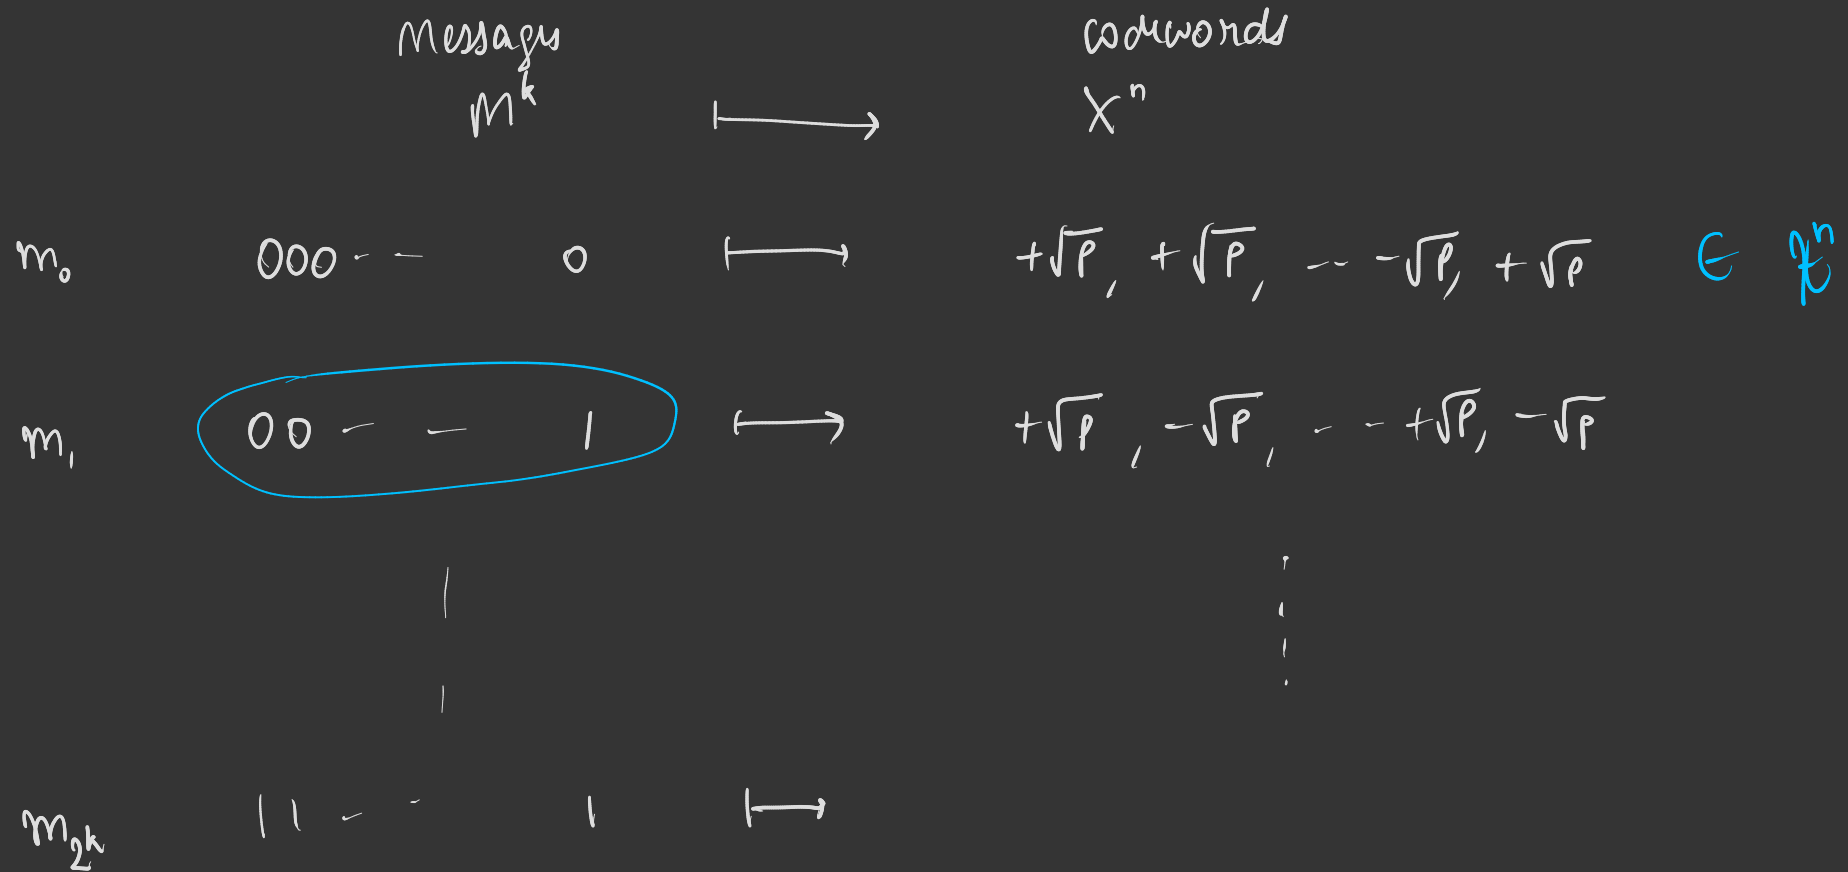 Messages codewords
M^k ⟼ X^n
m_0 000 - - 0 ⟼ +√P, +√P, -- -√P, +√P ∈ 𝒳^n
m_1 00 - - 1 ⟼ +√P, -√P, - - +√P, -√P
m_{2^k} 11 - - 1 ⟼